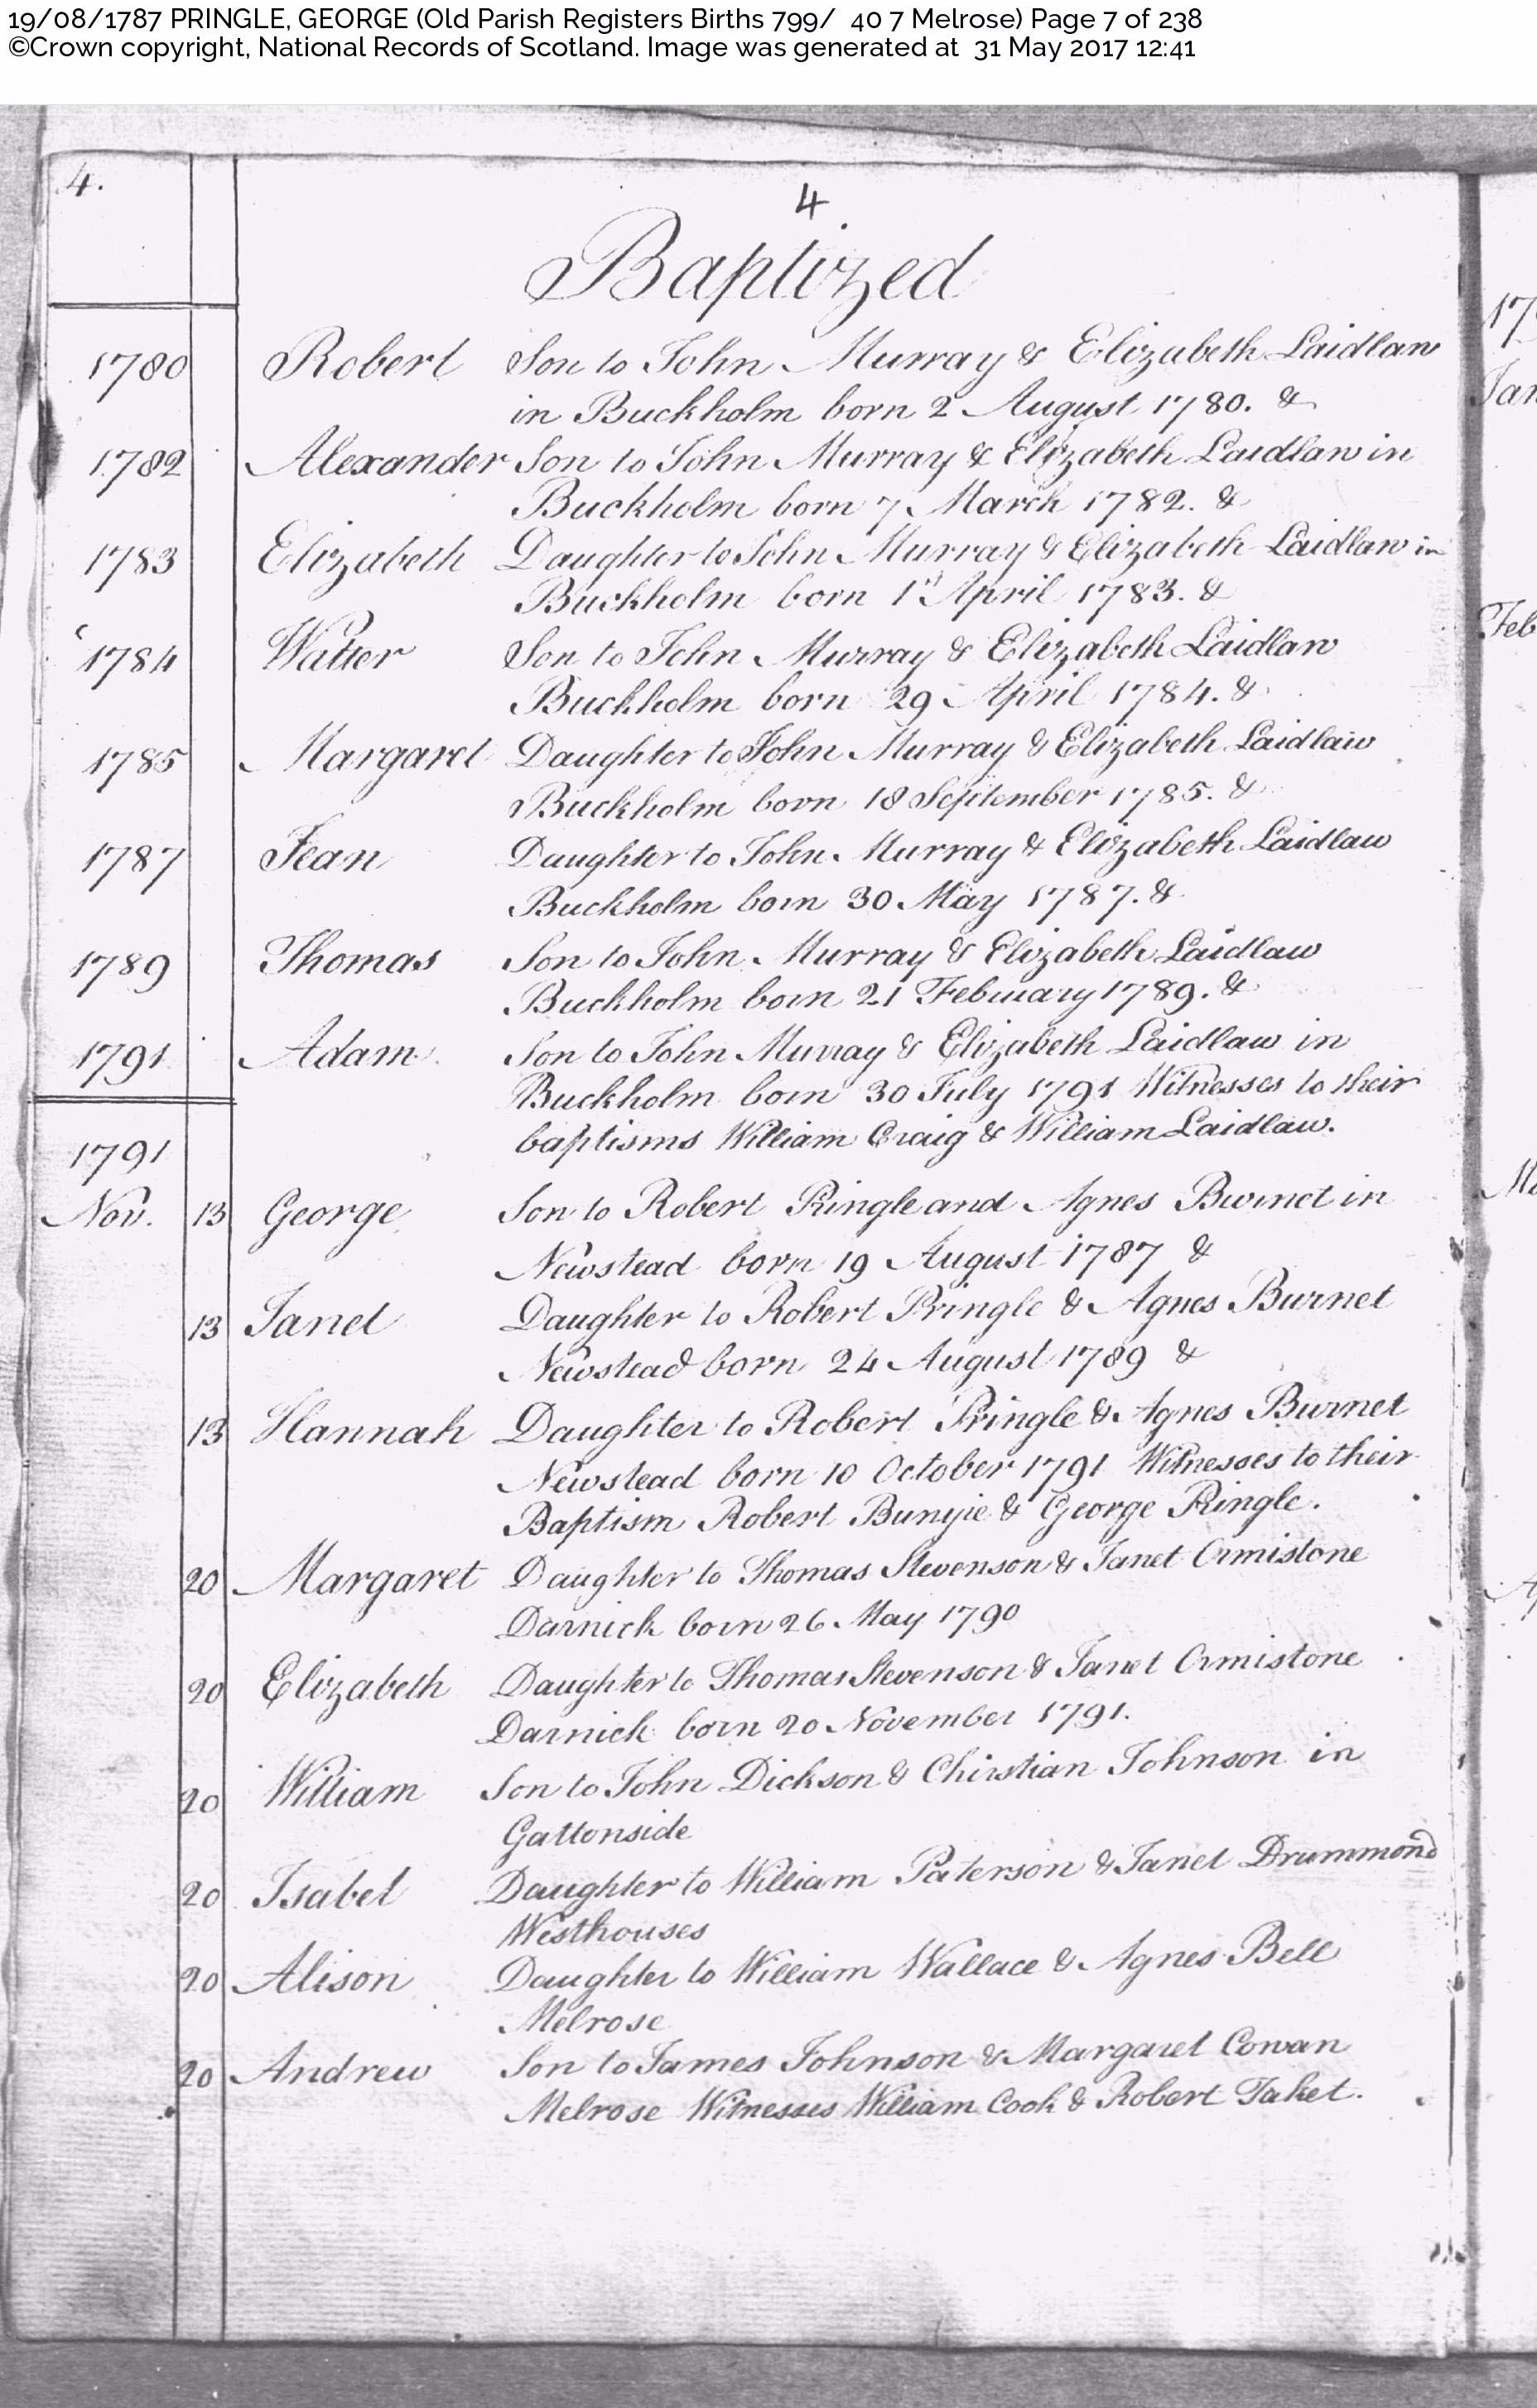 19/08/1787 PRINGLE, GEORGE (Old Parish Registers Births 799/ 40 7 Melrose) Page 7 of 238
©Crown copyright, National Records of Scotland. Image was generated at 31 May 2017 12:41
4.
4
Baptized
1780 Robert Son to John Murray & Elizabeth Laidlaw
in Buckholm born 2 August 1780. &
1782 Alexander Son to John Murray & Elizabeth Laidlaw in
Buckholm born 7 March 1782. &
1783 Elizabeth Daughter to John Murray & Elizabeth Laidlaw in
Buckholm born 1st April 1783. &
1784 Walter Son to John Murray & Elizabeth Laidlaw
Buckholm born 29 April 1784. &
1785 Margaret Daughter to John Murray & Elizabeth Laidlaw
Buckholm born 18 September 1785. &
1787 Jean Daughter to John Murray & Elizabeth Laidlaw
Buckholm born 30 May 1787. &
1789 Thomas Son to John Murray & Elizabeth Laidlaw
Buckholm born 21 February 1789. &
1791 Adam Son to John Murray & Elizabeth Laidlaw in
Buckholm born 30 July 1791 Witnesses to their
baptisms William Craig & William Laidlaw.
1791
Nov. 13 George Son to Robert Pringle and Agnes Burnet in
Newstead born 19 August 1787 &
13 Janet Daughter to Robert Pringle & Agnes Burnet
Newstead born 24 August 1789 &
13 Hannah Daughter to Robert Pringle & Agnes Burnet
Newstead born 10 October 1791 Witnesses to their
Baptism Robert Bunyie & George Pringle.
20 Margaret Daughter to Thomas Stevenson & Janet Ormistone
Darnick born 26 May 1790
20 Elizabeth Daughter to Thomas Stevenson & Janet Ormistone
Darnick born 20 November 1791.
20 William Son to John Dickson & Chirstian Johnson in
Gattonside
20 Isabel Daughter to William Paterson & Janet Drummond
Westhouses
20 Alison Daughter to William Wallace & Agnes Bell
Melrose
20 Andrew Son to James Johnson & Margaret Cowan
Melrose Witnesses William Cook & Robert Taket.
Jan
Feb